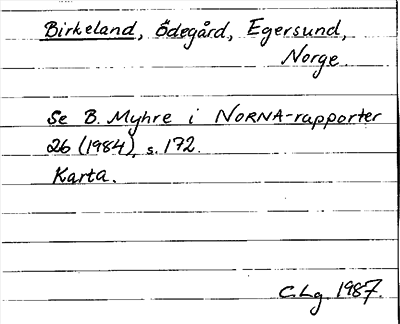 Birkeland, Ödegård, Egersund,
Norge
Se B. Myhre i NORNA-rapporter
26 (1984), s. 172.
Karta.
C.Lg. 1987.